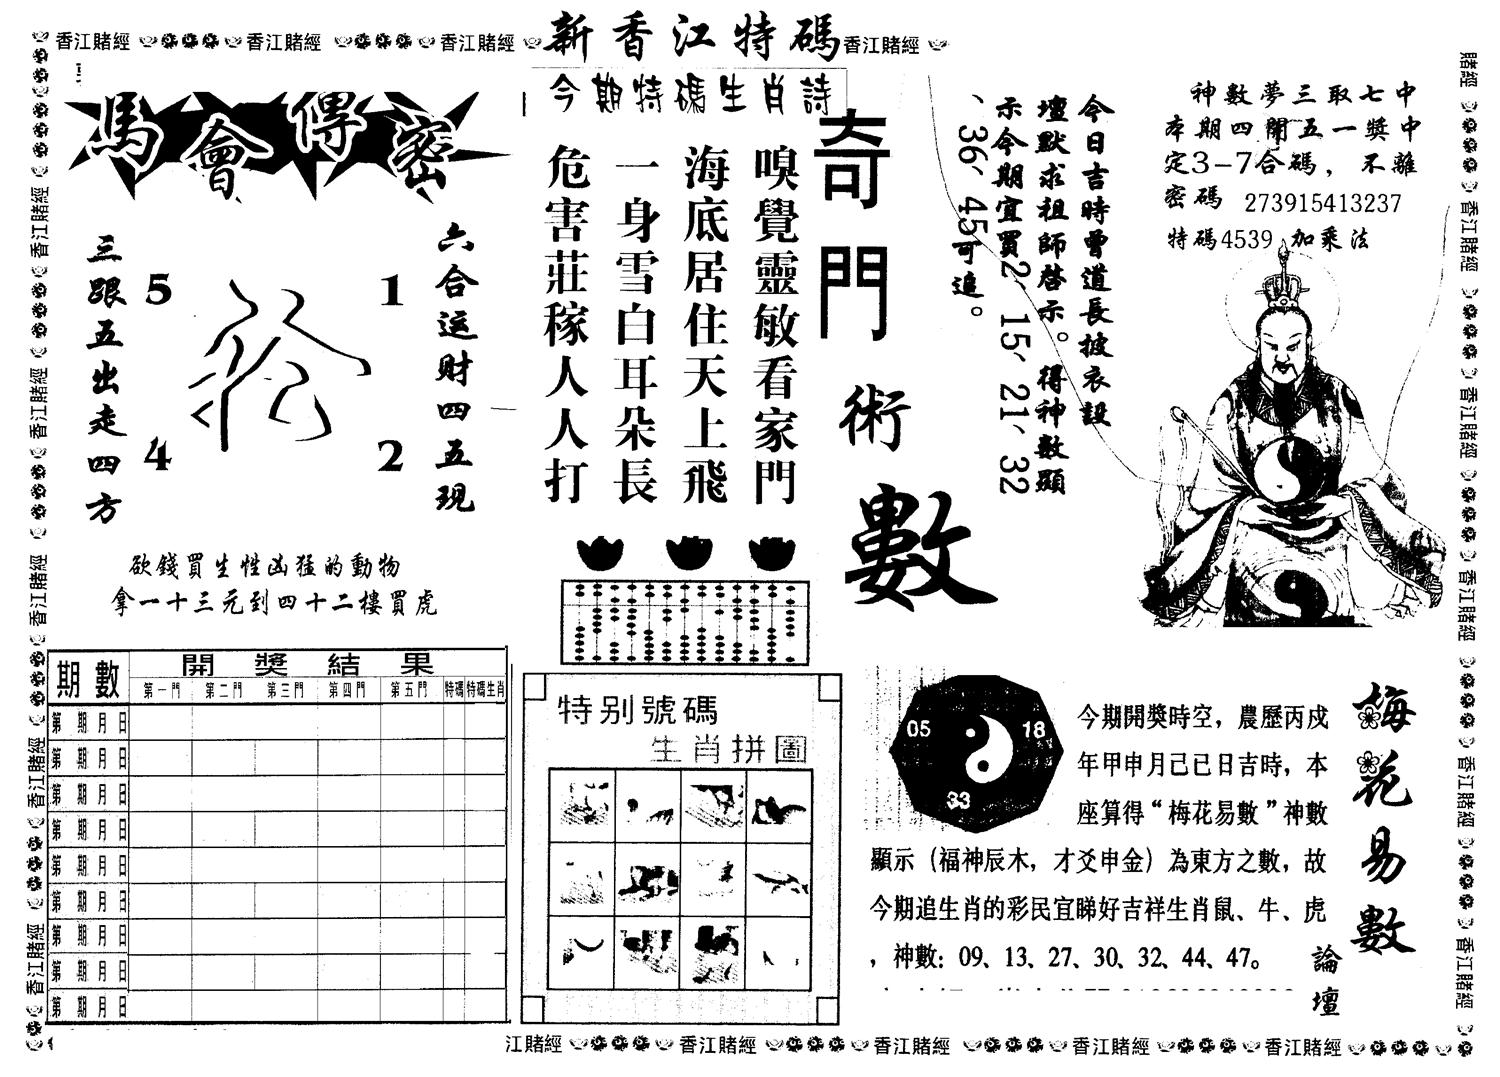 新香江特碼
香江賭經 香江賭經 香江賭經 香江賭經
今期特碼生肖詩
嗅覺靈敏看家門
海底居住天上飛
一身雪白耳朵長
危害莊稼人人打
馬會傳密
六合运财四五現
三跟五出走四方
5 1
4 2
欲錢買生性凶猛的動物
拿一十三元到四十二樓買虎
奇門術數
今日吉時曾道長披衣設
壇默求祖師啓示。得神數顯
示今期宜買2、15、21、32
、36、45可追。
神數夢三取七中
本期四開五一獎中
定3-7合碼，不離
密碼 273915413237
特碼4539 加乘法
期數 開獎結果
第一門 第二門 第三門 第四門 第五門 特碼 特碼生肖
第 期 月 日
第 期 月 日
第 期 月 日
第 期 月 日
第 期 月 日
第 期 月 日
第 期 月 日
第 期 月 日
第 期 月 日
特别號碼
生肖拼圖
05 18
33
梅花易數
論壇
今期開獎時空，農歷丙戍
年甲申月己巳日吉時，本
座算得“梅花易數”神數
顯示（福神辰木，才爻申金）為東方之數，故
今期追生肖的彩民宜睇好吉祥生肖鼠、牛、虎
，神數：09、13、27、30、32、44、47。
賭經 香江賭經 香江賭經 香江賭經 香江賭經 香江賭經
香江賭經 香江賭經 香江賭經 香江賭經 香江賭經
江賭經 香江賭經 香江賭經 香江賭經 香江賭經